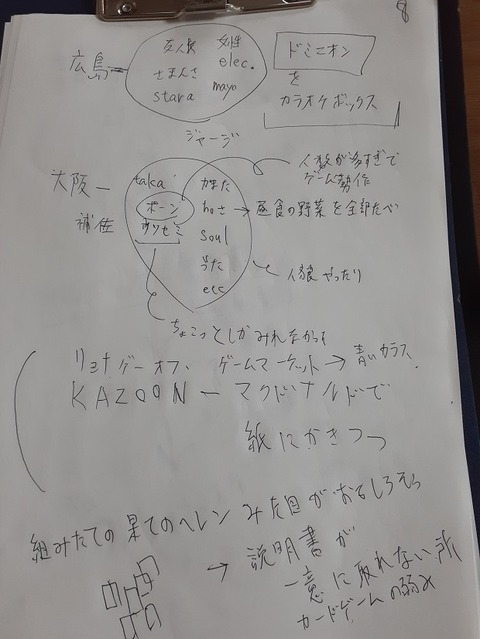 8
広島
友人見 女性
elec.
さまんさ
stara mayo
ドミニオン
を
カラオケボックス
ジャージ
大阪 ー
補佐
taka
ポーン
かまた
hosa → 昼食の野菜を全部たべ
soul
etc
人数が多すぎで
ゲーム勢作
人狼 やったり
ちょこっとしかみれなかった
リョナゲーオフ、ゲームマーケット → 青いカラス
KAZOON ー マクドナルドで
紙にかきつつ
組みたての果てのヘレン み た目がおもしろそう
→ 説明書が
一意に取れない所
カードゲームの弱み